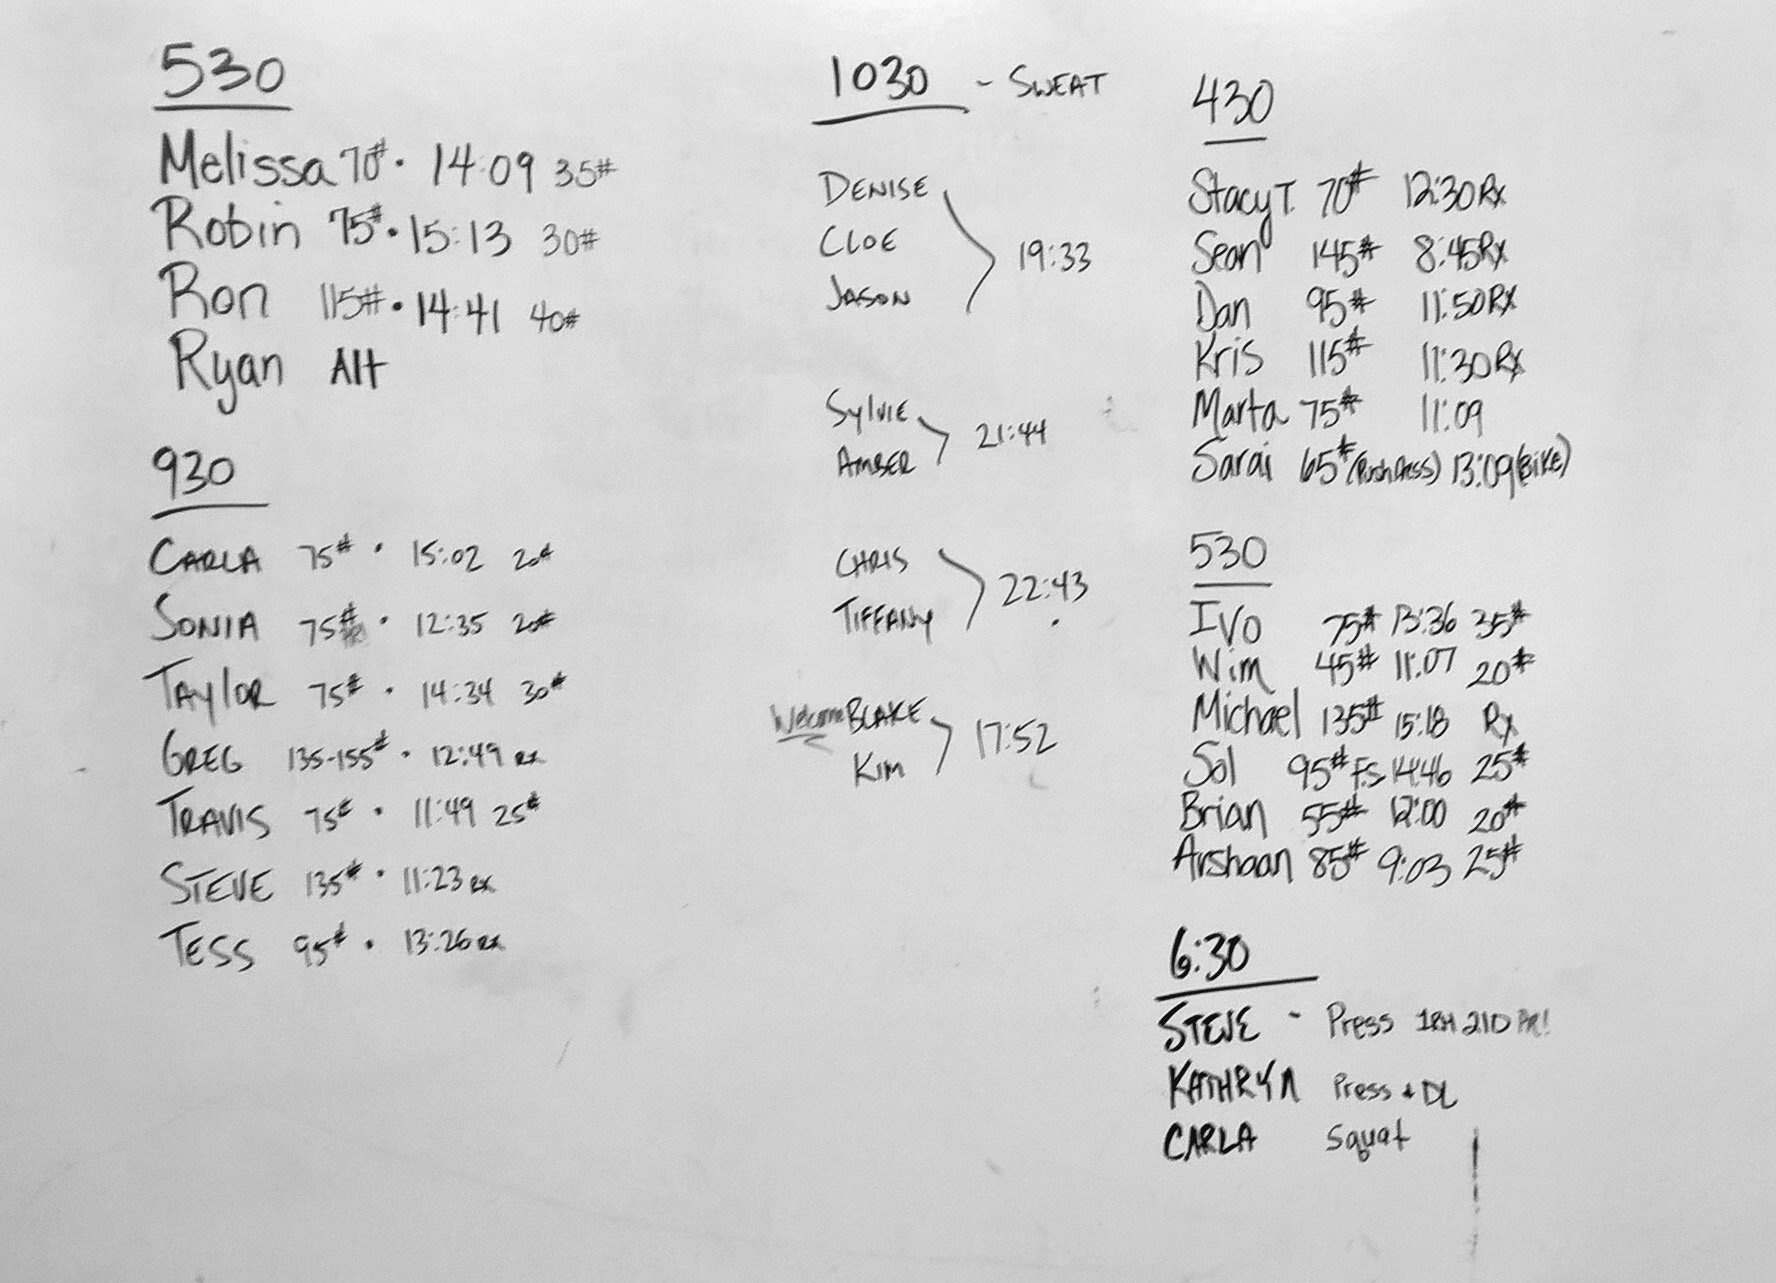 530
Melissa 70# · 14:09 35#
Robin 75# · 15:13 30#
Ron 115# · 14:41 40#
Ryan Alt
930
CARLA 75# · 15:02 20#
SONIA 75# · 12:35 20#
TAYLOR 75# · 14:34 30#
GREG 135-155# · 12:49 RX
TRAVIS 75# · 11:49 25#
STEVE 135# · 11:23 RX
TESS 95# · 13:26 RX
1030 - SWEAT
DENISE
CLOE 19:33
JASON
SYLVIE
AMBER 21:44
CHRIS
TIFFANY 22:43
Welcome BLAKE
KIM 17:52
430
Stacy T. 70# 12:30 Rx
Sean 145# 8:45 Rx
Dan 95# 11:50 RX
Kris 115# 11:30 Rx
Marta 75# 11:09
Sarai 65# (Push Press) 13:09 (BiKE)
530
IVO 75# 13:36 35#
Wim 45# 11:07 20#
Michael 135# 15:18 Rx
Sol 95# F.S. 14:46 25#
Brian 55# 12:00 20#
Arshaan 85# 9:03 25#
6:30
STEVE - Press 1RM 210 PR!
KATHRYN Press + DL
CARLA Squat